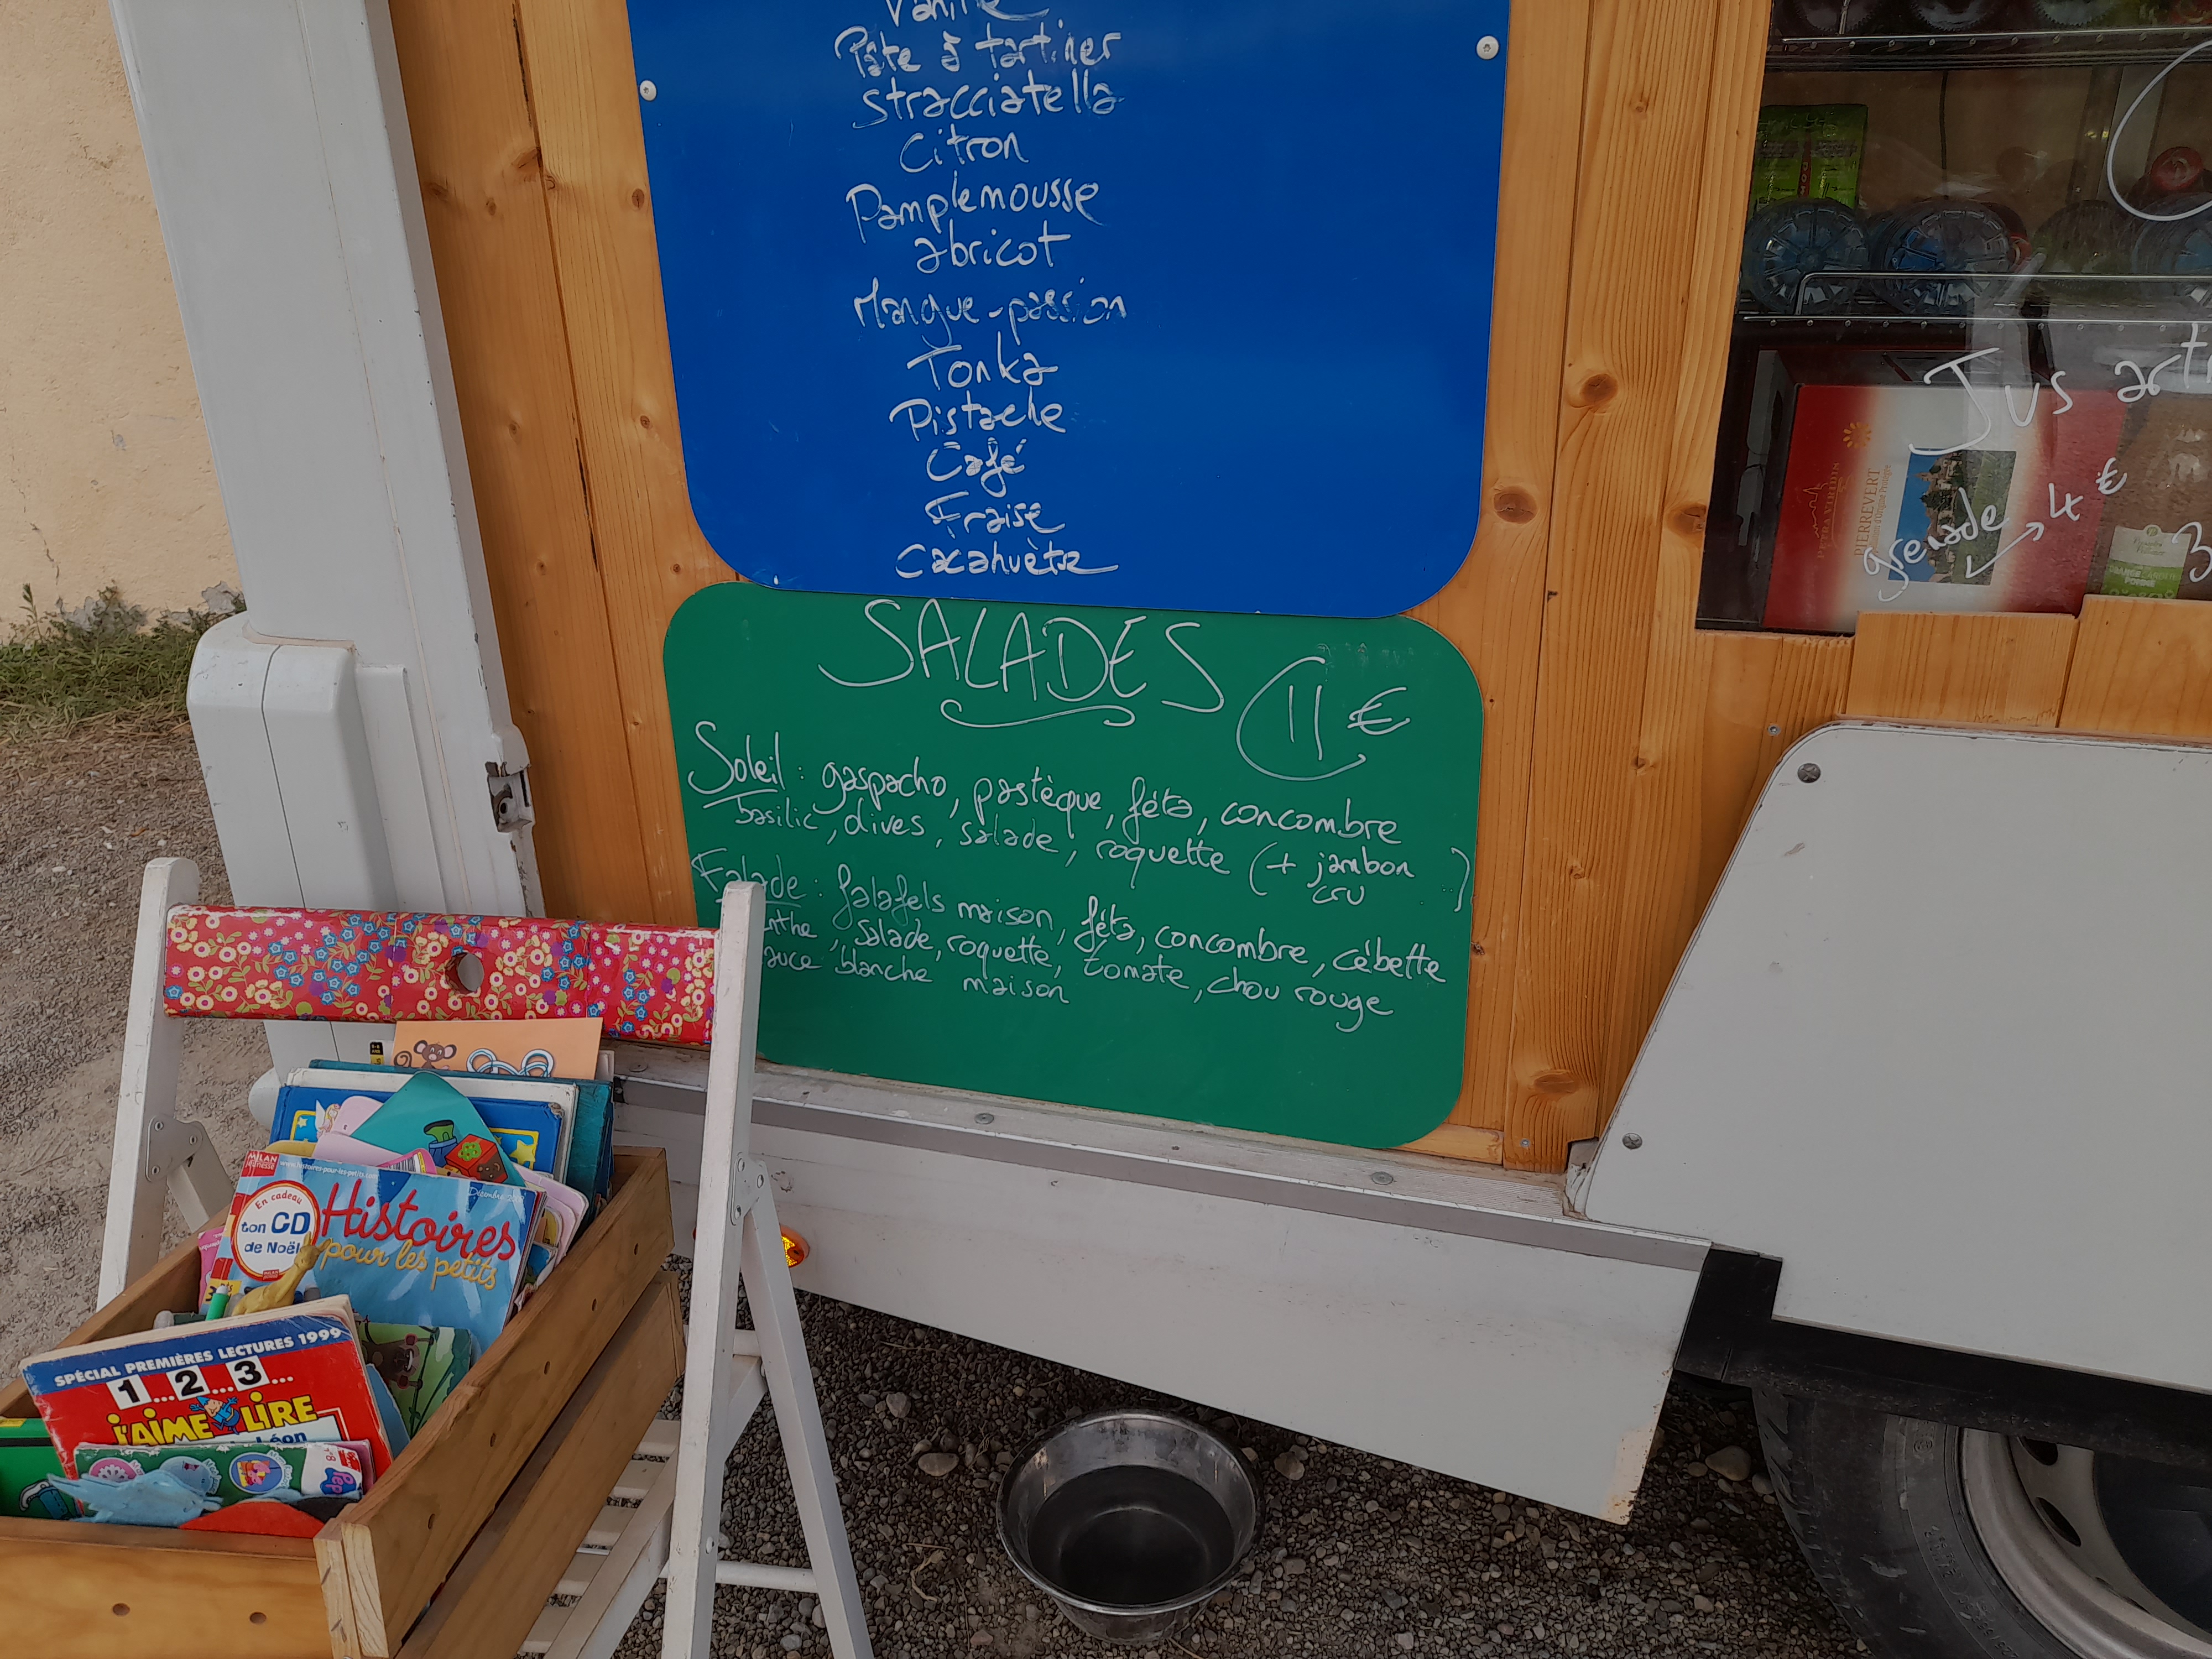 Vanille
Pâte à tartiner
Stracciatella
Citron
Pamplemousse
abricot
Mangue-passion
Tonka
Pistache
Café
Fraise
Cacahuète
SALADES
11 €
Soleil : gaspacho, pastèque, féta, concombre
basilic, olives, salade, roquette (+ jambon
cru)
Falade : falafels maison, féta, concombre, cébette
nthe, salade, roquette, tomate, chou rouge
auce blanche maison
Jus art
grenade → 4 €
3
PETRA VIRIDIS
PIERREVERT
MILAN
jeunesse
www.histoires-pour-les-petits.com
En cadeau
ton CD
de Noël
Histoires
pour les petits
SPÉCIAL PREMIÈRES LECTURES 1999
1...2...3...
j'AIME LIRE
Léon